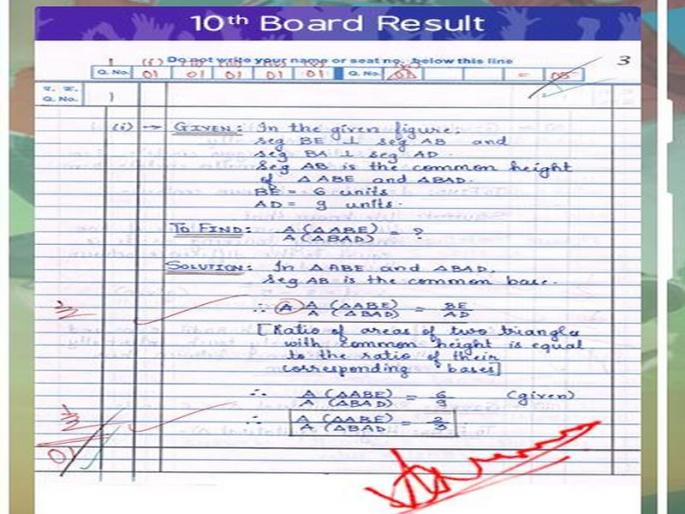 10th Board Result
1 (i) Do not write your name or seat no. below this line 3
Q. No. 01 01 01 01 01 Q. No. 05 = 05
Q. No. 1
(i) → GIVEN: In the given figure,
seg BE ⊥ seg AB and
seg BA ⊥ seg AD.
Seg AB is the common height
of △ABE and △BAD.
BE = 6 units
AD = 9 units.
TO FIND: A(△ABE)/A(△BAD) = ?
SOLUTION: In △ABE and △BAD,
Seg AB is the common base.
∴ A A(△ABE)/A(△BAD) = BE/AD
[Ratio of areas of two triangles
with common height is equal
to the ratio of their
corresponding bases]
∴ A(△ABE)/A(△BAD) = 6/9 (given)
∴ A(△ABE)/A(△BAD) = 2/3
01